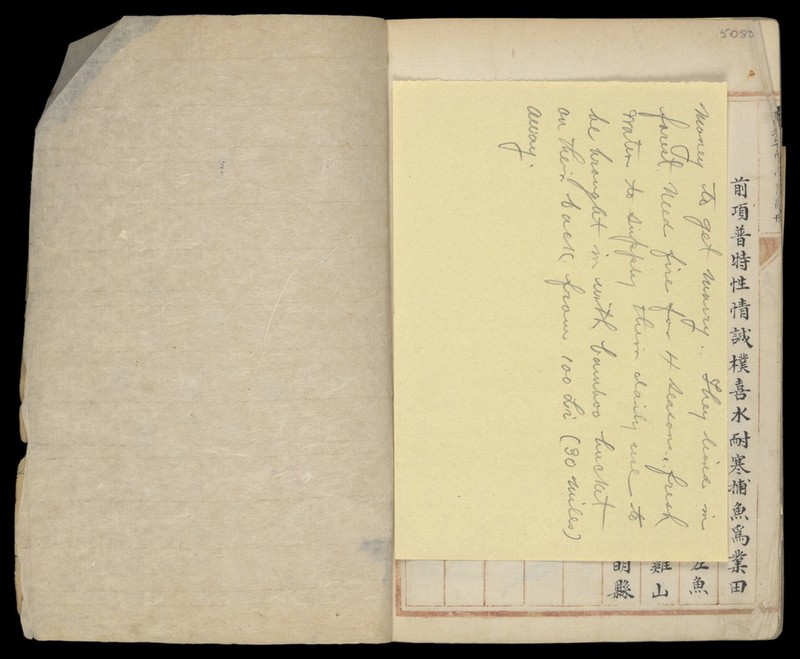 5083
money to get marry. They lived in
forest. Need fire for 4 seasons, fresh
water to supply their daily use to
be brought in with bamboo bucket
on their back from 100 Li (30 miles)
away.
前項普特性情誠樸喜水耐寒捕魚爲業田
魚
雞山
明縣